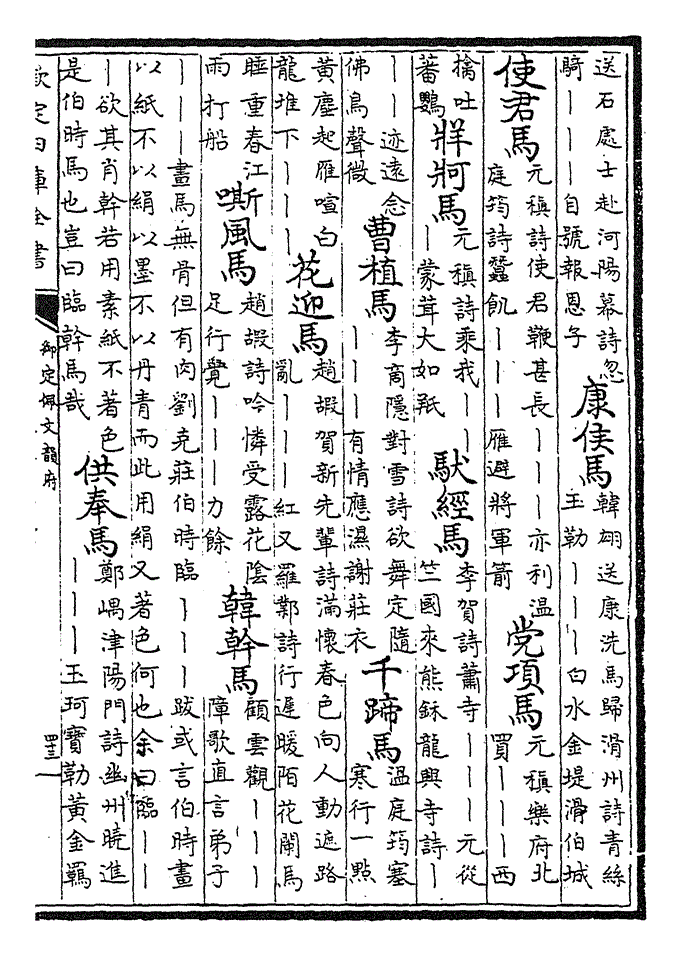 送石處士赴河陽幕詩忽
騎｜｜｜自號報恩子
康侯馬
韓翃送康洗馬歸滑州詩青絲
玉勒｜｜｜白水金堤滑伯城
使君馬
元稹詩使君鞭甚長｜｜｜亦利溫
庭筠詩蠶飢｜｜｜雁避將軍箭
党項馬
元稹樂府北
買｜｜｜西
擒吐
蕃鸚
牂牁馬
元稹詩乘我｜｜
｜蒙茸大如羝
馱經馬
李賀詩蕭寺｜｜｜元從
竺國來熊鉌龍興寺詩｜
｜｜迹遠念
佛鳥聲微
曹植馬
李商隱對雪詩欲舞定隨
｜｜｜有情應濕謝莊衣
千蹄馬
溫庭筠塞
寒行一點
黃塵起雁喧白
龍堆下｜｜｜
花迎馬
趙嘏賀新先輩詩滿懷春色向人動遮路
亂｜｜｜紅又羅鄴詩行遲暖陌花闌馬
睡重春江
雨打船
嘶風馬
趙嘏詩吟憐受露花陰
足行覺｜｜｜力餘
韓幹馬
顧雲觀｜｜｜
障歌直言弟子
｜｜｜畫馬無骨但有肉劉克莊伯時臨｜｜｜跋或言伯時畫
以紙不以絹以墨不以丹青而此用絹又著色何也余曰臨｜｜
｜欲其肖幹若用素紙不著色
是伯時馬也豈曰臨幹馬哉
供奉馬
鄭嵎津陽門詩幽州曉進
｜｜｜玉珂寶勒黃金羈
欽定四庫全書
御定佩文韻府
四十三